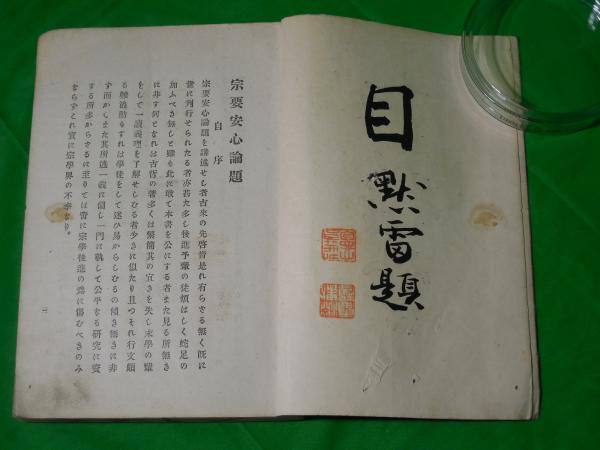 目
默雷題
宗要安心論題
自序
宗要安心論題を講述せし者古來の先啓皆是れ有らさる無く既に
世に刊行せられたる者亦甚た多し後進予輩の徒煩はしく蛇足の
加ふへき無しと雖も此に敢て本書を公にする者また見る所無き
に非す何となれは古哲の著多くは繁簡其の宜きを失し末學の輩
をして一讀義理を了解せしむる者少きに似たり且つそれ行文頗
る
すれは學徒をして迷ひ易からしむるの傾き無きに非
す而かもまた其所述一義に偏し一門に執して公平なる研究に資
する所多からさるに至りては啻に宗學後進の爲に傷むへきのみ
ならすこれ實に宗學界の不幸なり。